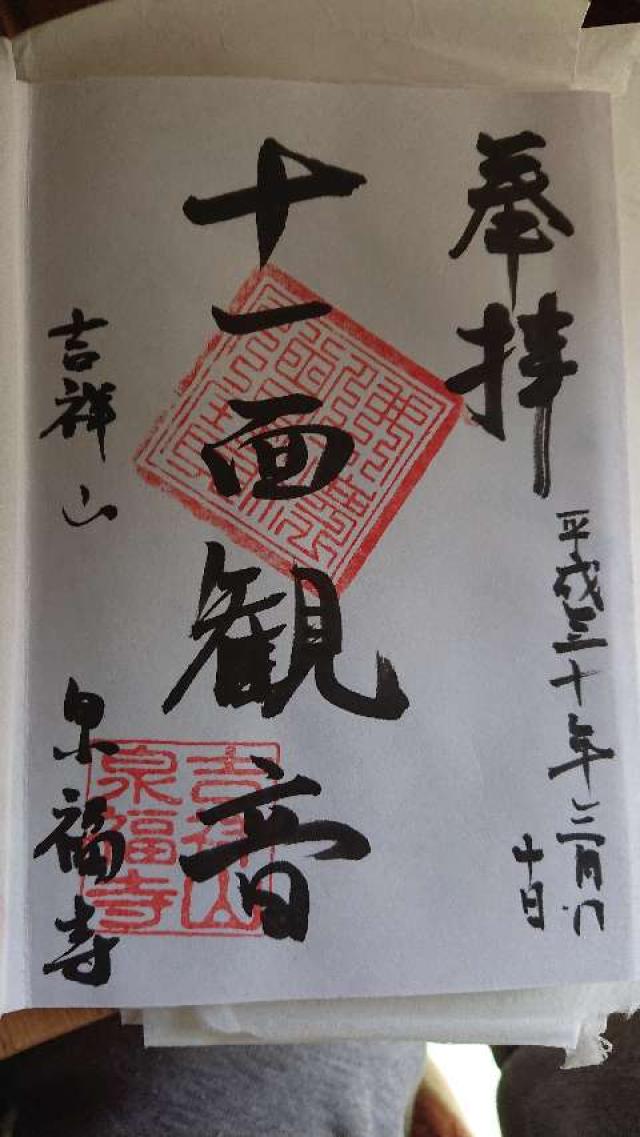 奉拝
平成三十年三月
十日
十一面観音
吉祥山
泉福寺
吉祥山
泉福寺